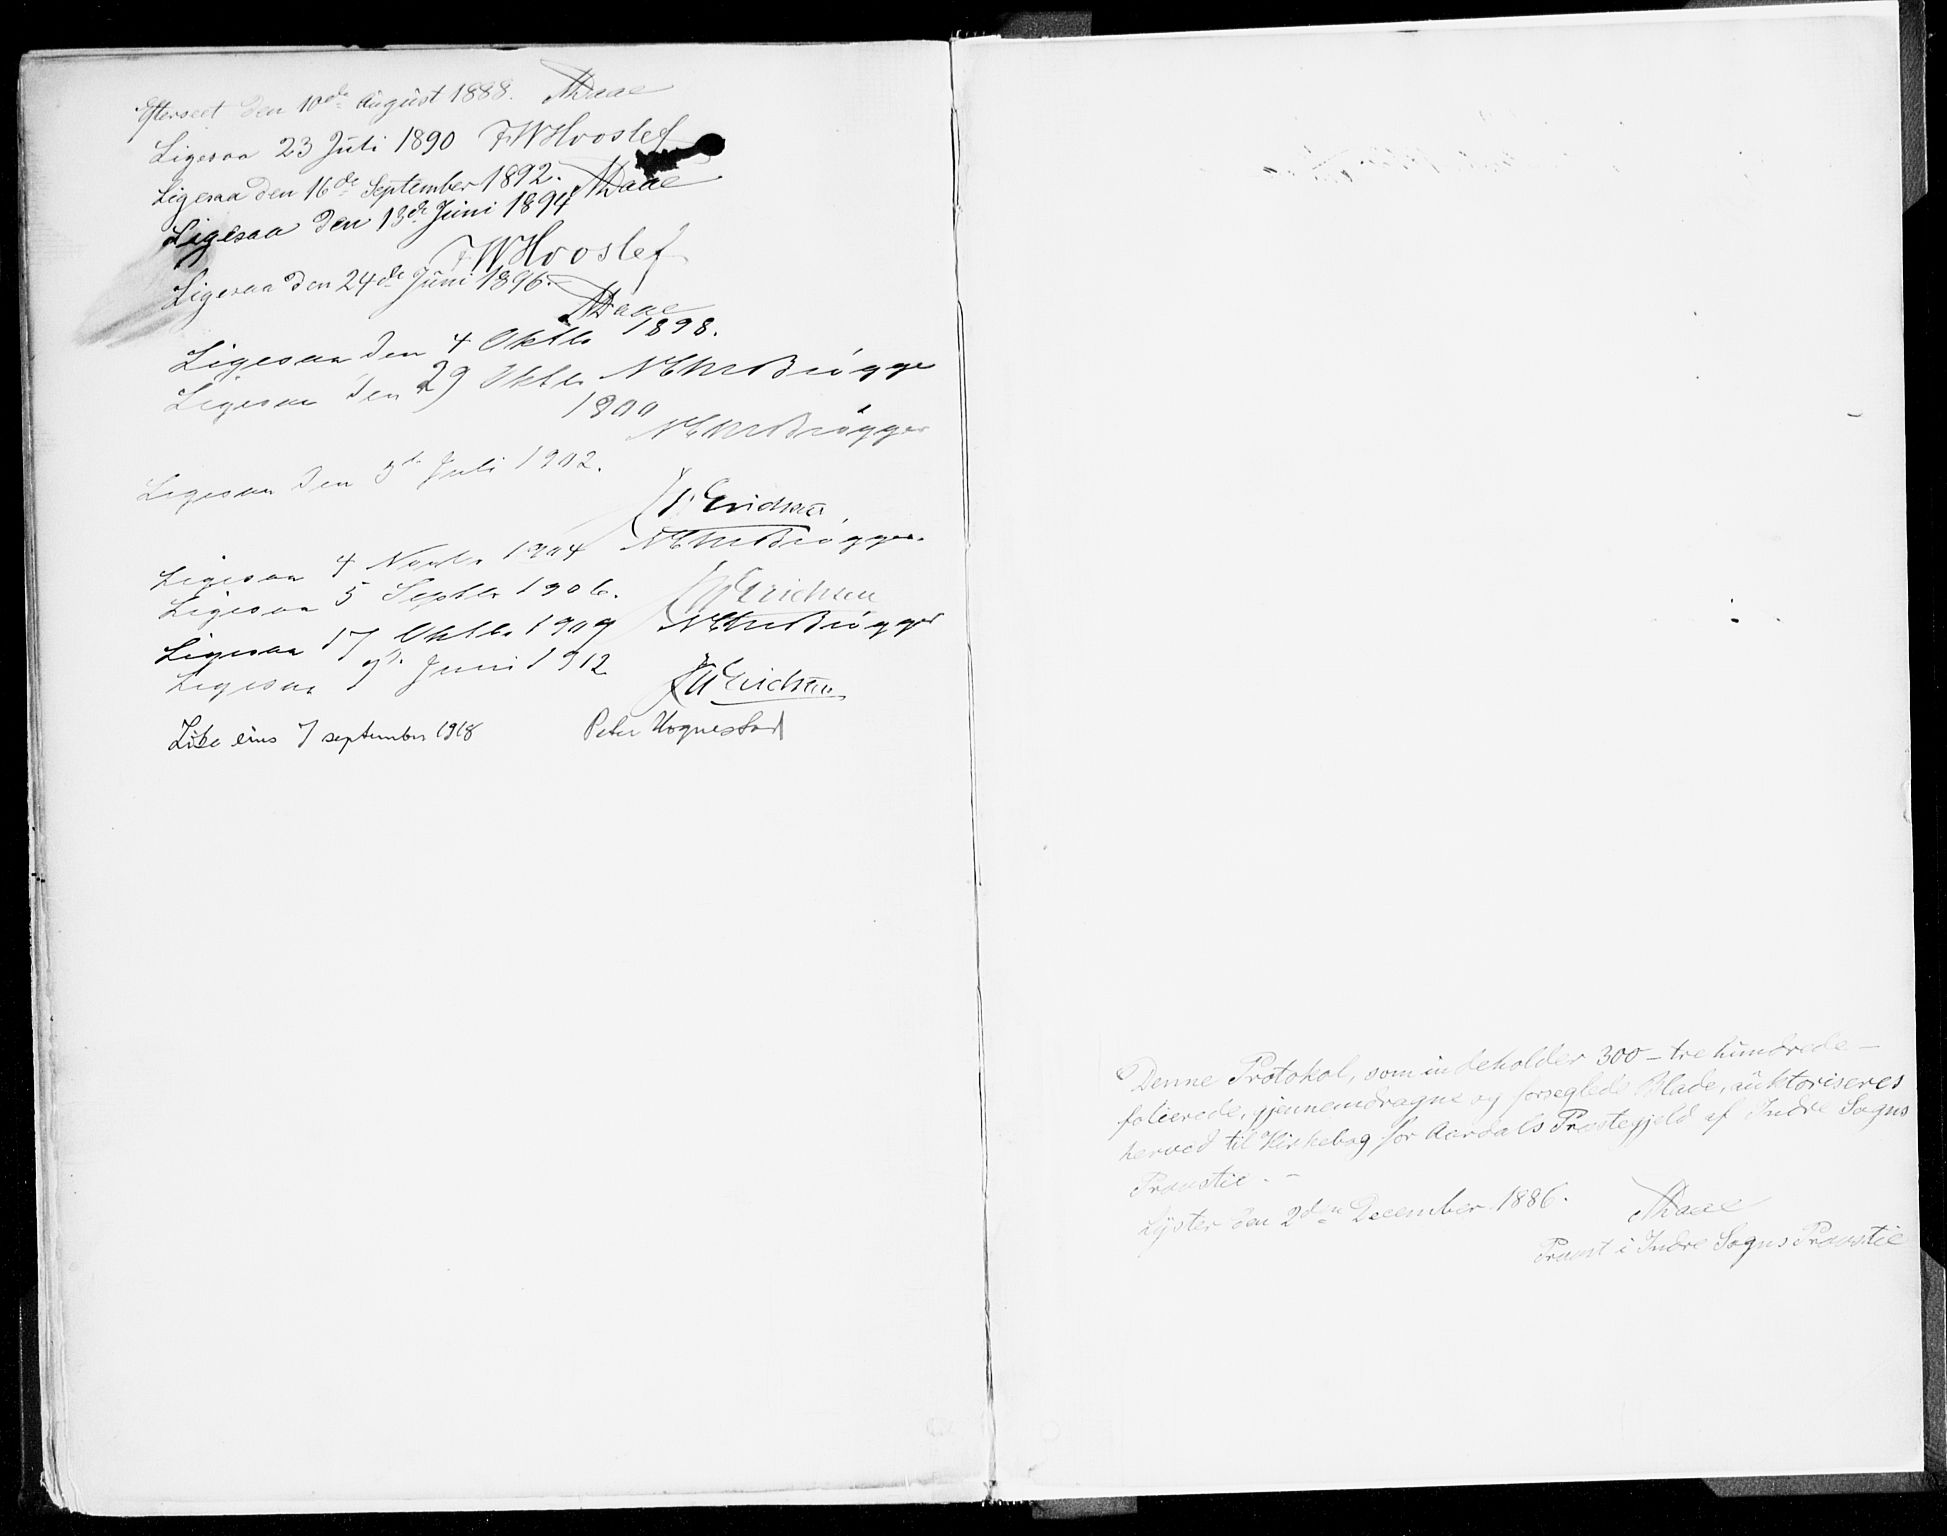 Efterseet den 10de August 1888. ADaae
Ligesaa 23 Juli 1890 FWHvoslef
Ligesaa den 16de September 1892. ADaae
Ligesaa den 13de Juni 1894
FWHvoslef
Ligesaa den 24de Juni 1896.
ADaae
Ligesaa den 4 Oktbr 1898.
Brøgger
Ligesaa den 29 Oktbr
1900
Brøgger
Ligesaa den Juli 1902.
Erichsen
Ligesaa 4 Novbr 1904 Brøgger
Ligesaa 5 Septbr 1906. Erichsen
Ligesaa 17 Oktbr 1909 Brøgger
Ligesaa Juni 1912 Erichsen
Like eins 7 september 1918 Peter Hognestad
Denne Protokol, som indeholder 300 – tre hundrede –
folierede, gjennemdragne og forseglede Blade, auktoriseres
herved til Kirkebog for Aardals Præstegjeld af Indre Sogns
Provstie. –
Lyster den 2den December 1886.
ADaae
Provst i Indre Sogns Provstie